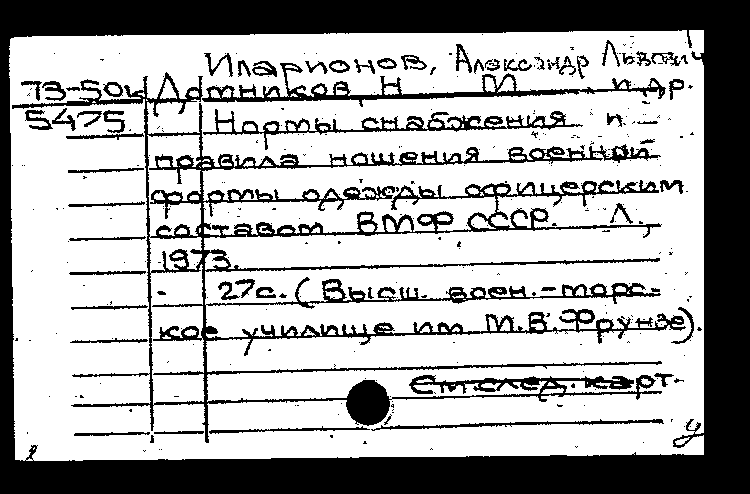 Иларионов, Александр Львович
73-50к Дотников, Н М и др.
5475 Нормы снабжения и
правила ношения военной
формы одежды офицерским
составом ВМФ СССР. Л.,
1973.
27с. (Высш. воен.-морс-
кое училище им М.В.Фрунзе).
См.след.карт.
у